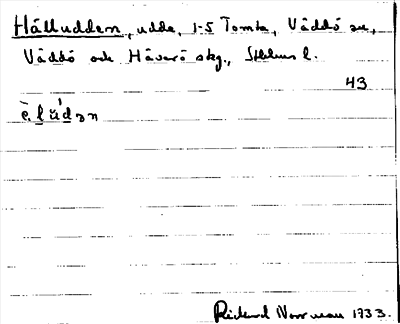 Hälludden, udde, 1-5 Tomta, Väddö sn,
Väddö och Häverö skg., Sthlms l.
43
Rickard Norrman 1933.